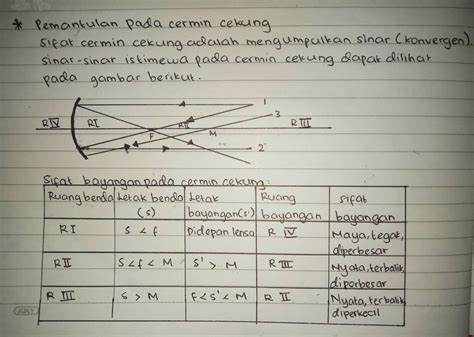 * Pemantulan pada cermin cekung
Sifat cermin cekung adalah mengumpulkan sinar (konvergen).
sinar-sinar istimewa pada cermin cekung dapat dilihat
pada gambar berikut.
1
3
R IV
RI
RII
R III
F
M
2
Sifat bayangan pada cermin cekung:
Ruang benda
Letak benda (s)
Letak bayangan (s')
Ruang bayangan
Sifat bayangan
R I
S < f
Didepan lensa
R IV
Maya, tegak,
diperbesar
R II
S < f < M
S' > M
R III
Nyata, terbalik
diperbesar
R III
S > M
f < s' < M
R II
Nyata, terbalik
diperkecil